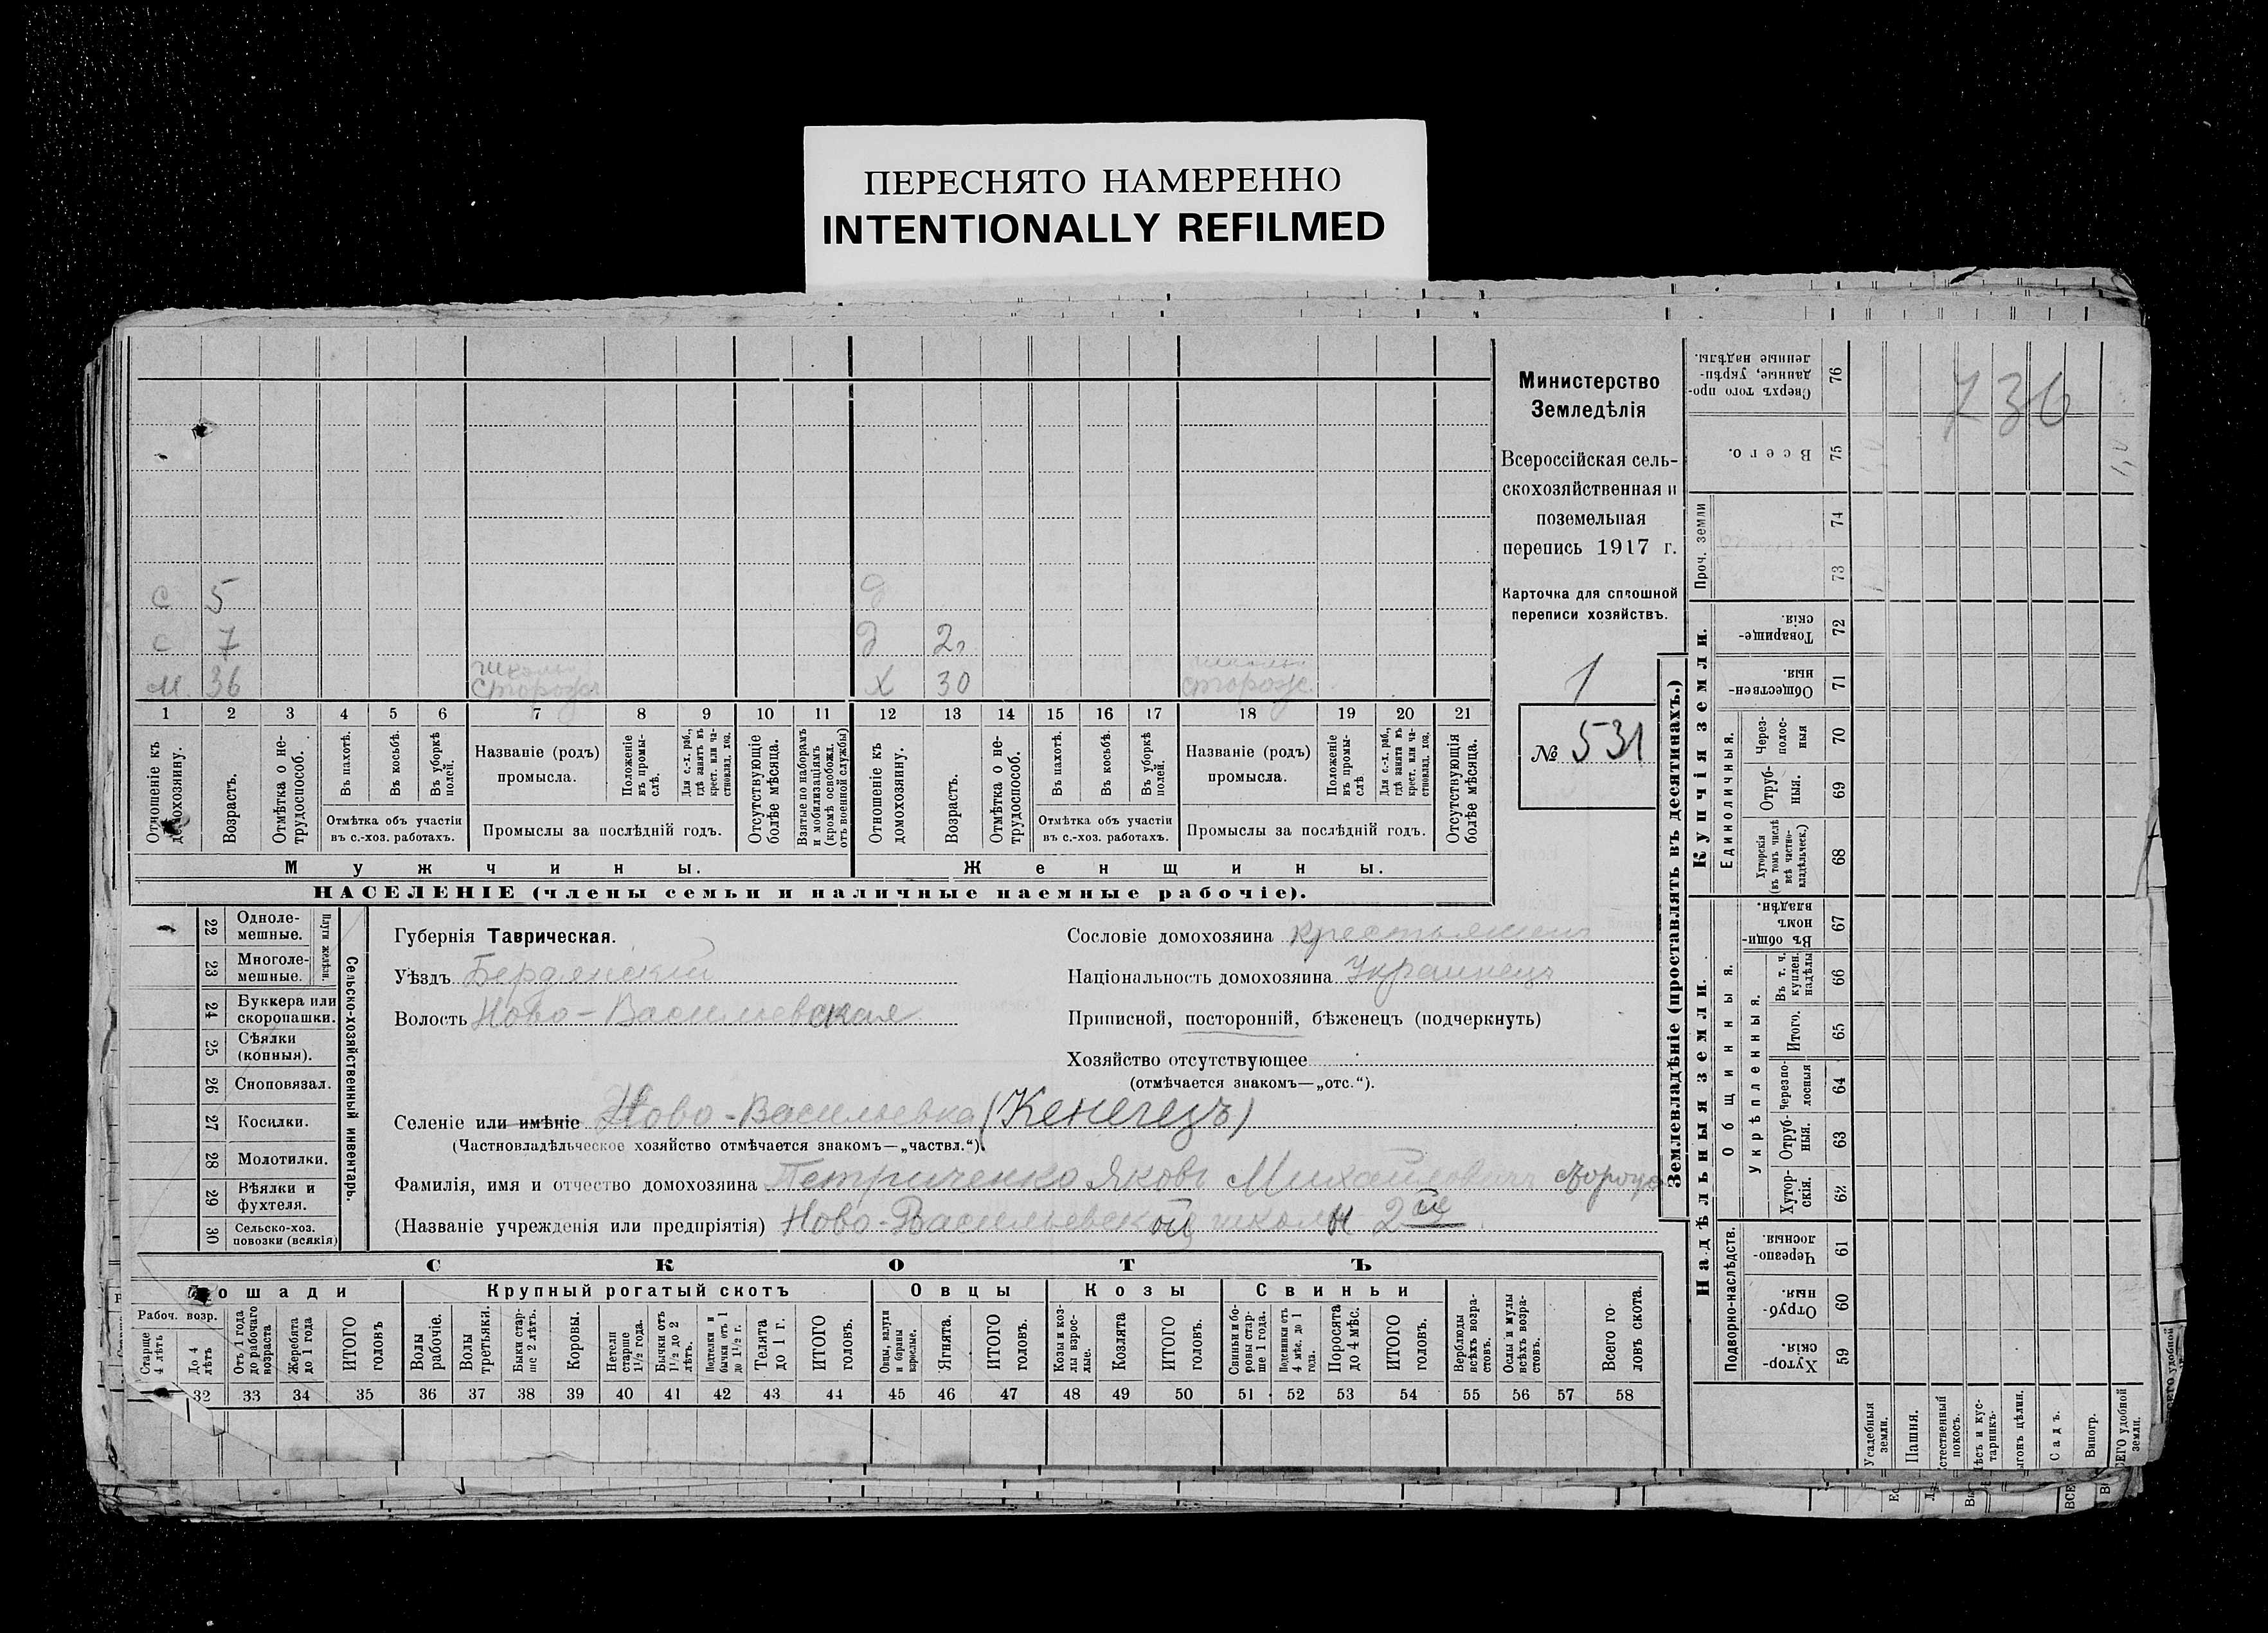 ПЕРЕСНЯТО НАМЕРЕННО
INTENTIONALLY REFILMED
Министерство
Земледѣлія
Всероссійская сель-
скохозяйственная и
поземельная
перепись 1917 г.
Карточка для сплошной
переписи хозяйствъ.
1
№ 531
736
с 5
с 7 д 2
м. 36 школы сторожъ х 30 сторож.
1 2 3 4 5 6 7 8 9 10 11 12 13 14 15 16 17 18 19 20 21
Отношеніе къ домохозяину.
Возрастъ.
Отмѣтка о не-трудоспособ.
Въ пахотѣ.
Въ косьбѣ.
Въ уборкѣ полей.
Отмѣтка объ участіи
въ с.-хоз. работахъ.
Названіе (родъ)
промысла.
Положеніе въ промы-слѣ.
Для с.-х. раб., гдѣ занятъ въ крест. или ча-стновлад. хоз.
Промыслы за послѣдній годъ.
Отсутствующіе болѣе мѣсяца.
Взятые по наборамъ и мобилизаціямъ (кромѣ освобожд. отъ военной службы)
Отношеніе къ домохозяину.
Возрастъ.
Отмѣтка о не-трудоспособ.
Въ пахотѣ.
Въ косьбѣ.
Въ уборкѣ полей.
Отмѣтка объ участіи
въ с.-хоз. работахъ.
Названіе (родъ)
промысла.
Положеніе въ промы-слѣ
Для с.-х. раб., гдѣ занята въ крест. или ча-стновлад. хоз.
Промыслы за послѣдній годъ.
Отсутствующія болѣе мѣсяца.
Мужчины. Женщины.
НАСЕЛЕНІЕ (члены семьи и наличные наемные рабочіе).
22 Одноле-мешные.
23 Многоле-мешные.
Плуги желѣзн.
24 Буккера или скоропашки.
25 Сѣялки (конныя).
26 Сноповязал.
27 Косилки.
28 Молотилки.
29 Вѣялки и фухтеля.
30 Сельско-хоз. повозки (всякія)
Сельско-хозяйственный инвентарь.
Губернія Таврическая.
Уѣздъ Бердянскій
Волость Ново-Васильевская
Сословіе домохозяина крестьянинъ
Національность домохозяина Украинецъ
Приписной, посторонній, бѣженецъ (подчеркнуть)
Хозяйство отсутствующее
(отмѣчается знакомъ—„отс.“).
Селеніе или имѣніе Ново-Васильевка (Кенегезъ)
(Частновладѣльческое хозяйство отмѣчается знакомъ—„частвл.“).
Фамилія, имя и отчество домохозяина Петриченко Яковъ Михайловичъ
(Названіе учрежденія или предпріятія) Ново-Васильевской школы 2й
СКОТЪ
Лошади Крупный рогатый скотъ Овцы Козы Свиньи
Рабоч. возр.
Старше 4 лѣтъ
До 4 лѣтъ
Отъ 1 года до рабочаго возраста
Жеребята до 1 года
ИТОГО головъ
Волы рабочіе.
Волы третьяки.
Быки стар-ше 2 лѣтъ.
Коровы.
Нетели старше 1 1/2 года.
Бычки отъ 1 1/2 до 2 лѣтъ.
Подтелки и бычки отъ 1 до 1 1/2 г.
Телята до 1 г.
ИТОГО головъ.
Овцы, валухи и бараны взрослые.
Ягнята.
ИТОГО головъ.
Козы и коз-лы взрос-лые.
Козлята
ИТОГО головъ.
Свиньи и бо-ровы стар-ше 1 года.
Подсвинки отъ 4 мѣс. до 1 года.
Поросята до 4 мѣс.
ИТОГО головъ.
Верблюды всѣхъ возра-стовъ.
Ослы и мулы всѣхъ возра-стовъ.
Всего го-ловъ скота.
32 33 34 35 36 37 38 39 40 41 42 43 44 45 46 47 48 49 50 51 52 53 54 55 56 57 58
Землевладѣніе (проставлять въ десятинахъ.)
Сверхъ того про-данные, укрѣп-ленные надѣлы. 76
Всего. 75
Проч. земли 74
73
Купчія земли.
Товарище-скія. 72
Обществен-ныя. 71
Единоличныя.
Через-полос-ныя 70
Отруб-ныя. 69
Хуторскія (въ томъ числѣ всѣ частно-владѣльческ.) 68
Надѣльныя земли.
Общинныя.
Въ общин-номъ владѣн. 67
Укрѣпленныя.
Въ т. ч. куплен. надѣлы 66
Итого. 65
Черезпо-лосныя 64
Отруб-ныя. 63
Хутор-скія. 62
Подворно-наслѣдств.
Черезпо-лосныя. 61
Отруб-ныя. 60
Хутор-скія. 59
Усадебныя земли.
Пашня.
стественный покосъ.
ѣсъ и кус-тарникъ.
ыгонъ цѣлин.
Садъ.
Виногр.
СЕГО удобной земли.